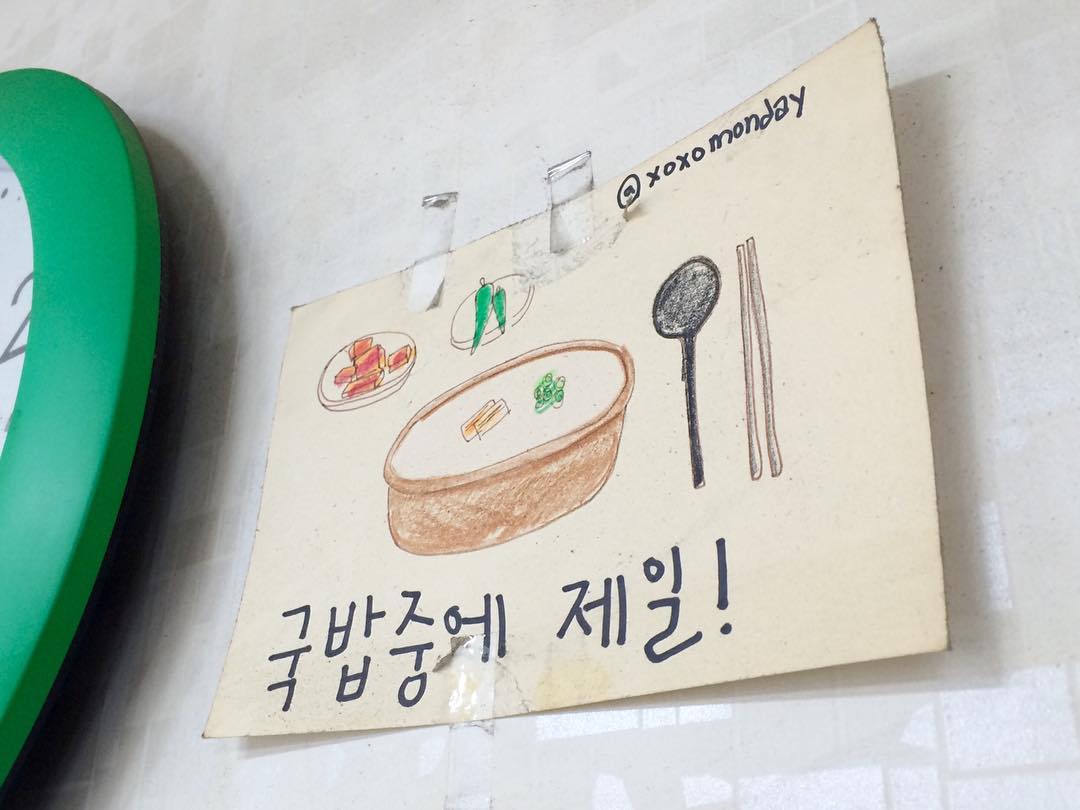 @xoxomonday
국밥중에 제일!
2